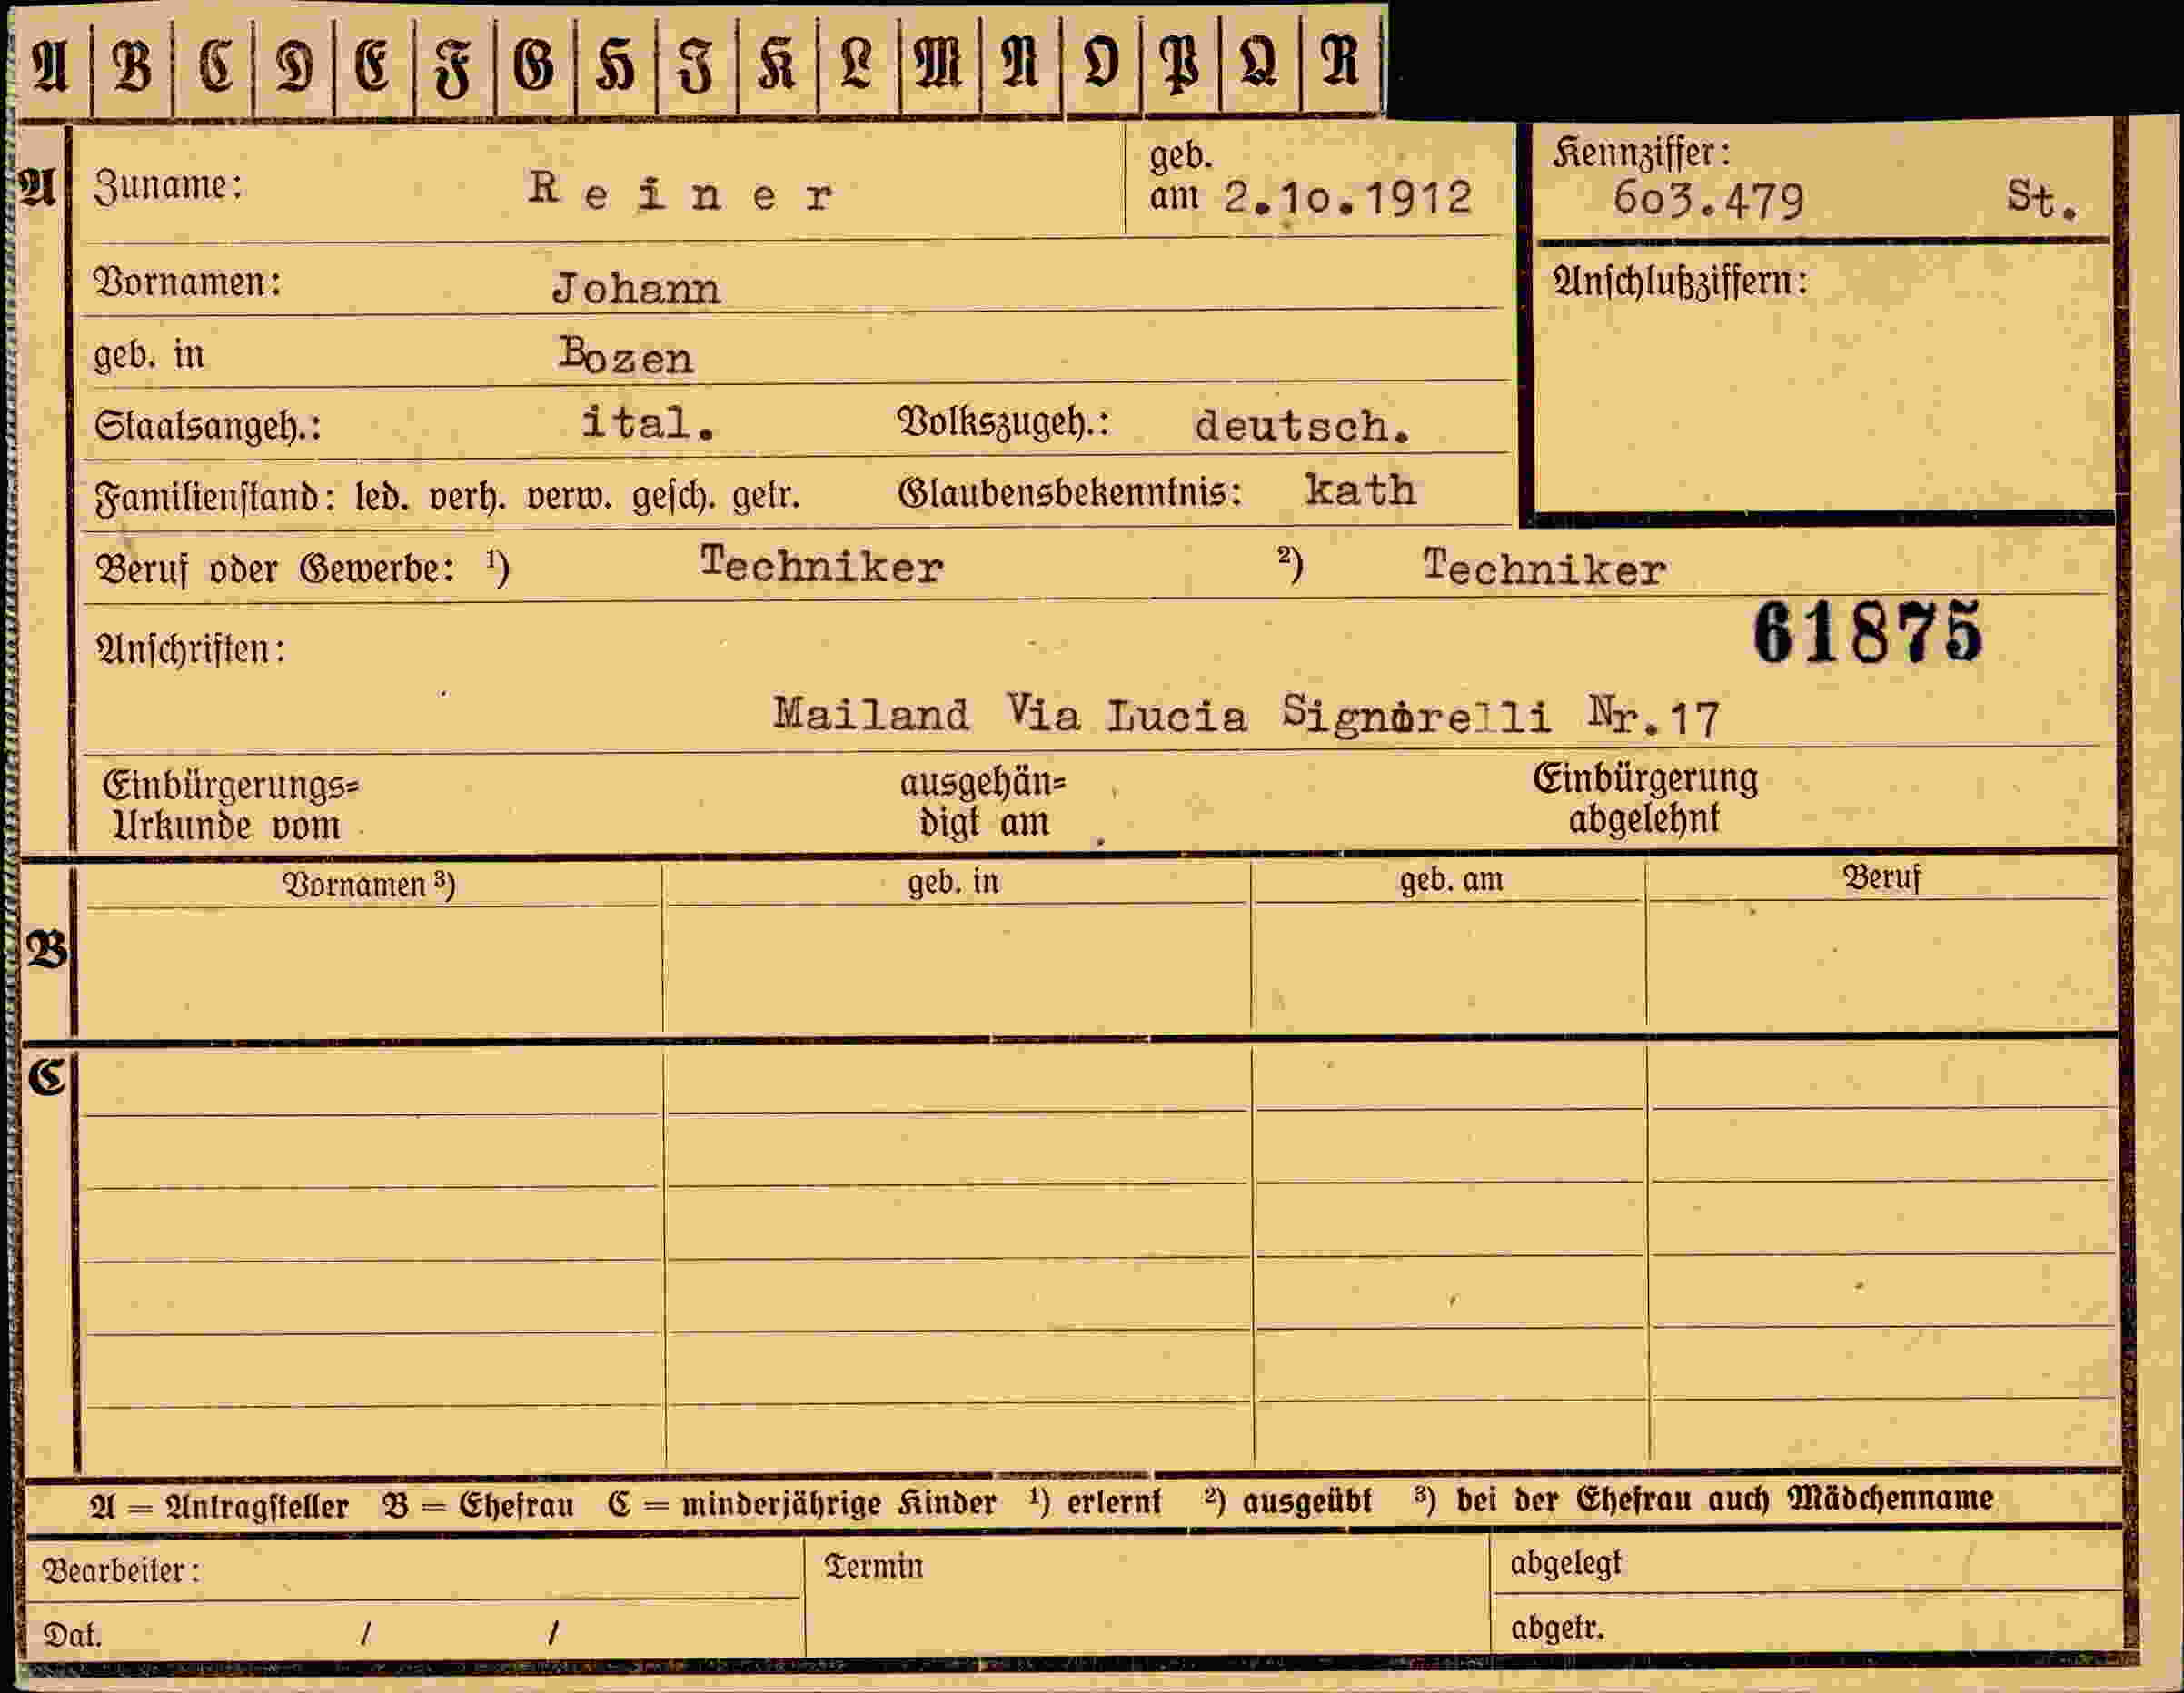 A B C D E F G H I K L M N O P Q R
A Zuname: Reiner geb. am 2.10.1912 Kennziffer: 603.479 St.
Vornamen: Johann Anschlußziffern:
geb. in Bozen
Staatsangeh.: ital. Volkszugeh.: deutsch.
Familienstand: led. verh. verw. gesch. getr. Glaubensbekenntnis: kath
Beruf oder Gewerbe: ¹) Techniker ²) Techniker
61875
Anschriften:
Mailand Via Lucia Signorelli Nr.17
Einbürgerungs= ausgehän= Einbürgerung
Urkunde vom digt am abgelehnt
Vornamen ³) geb. in geb. am Beruf
B
C
A = Antragsteller B = Ehefrau C = minderjährige Kinder ¹) erlernt ²) ausgeübt ³) bei der Ehefrau auch Mädchenname
Bearbeiter: Termin abgelegt
Dat. / / abgetr.